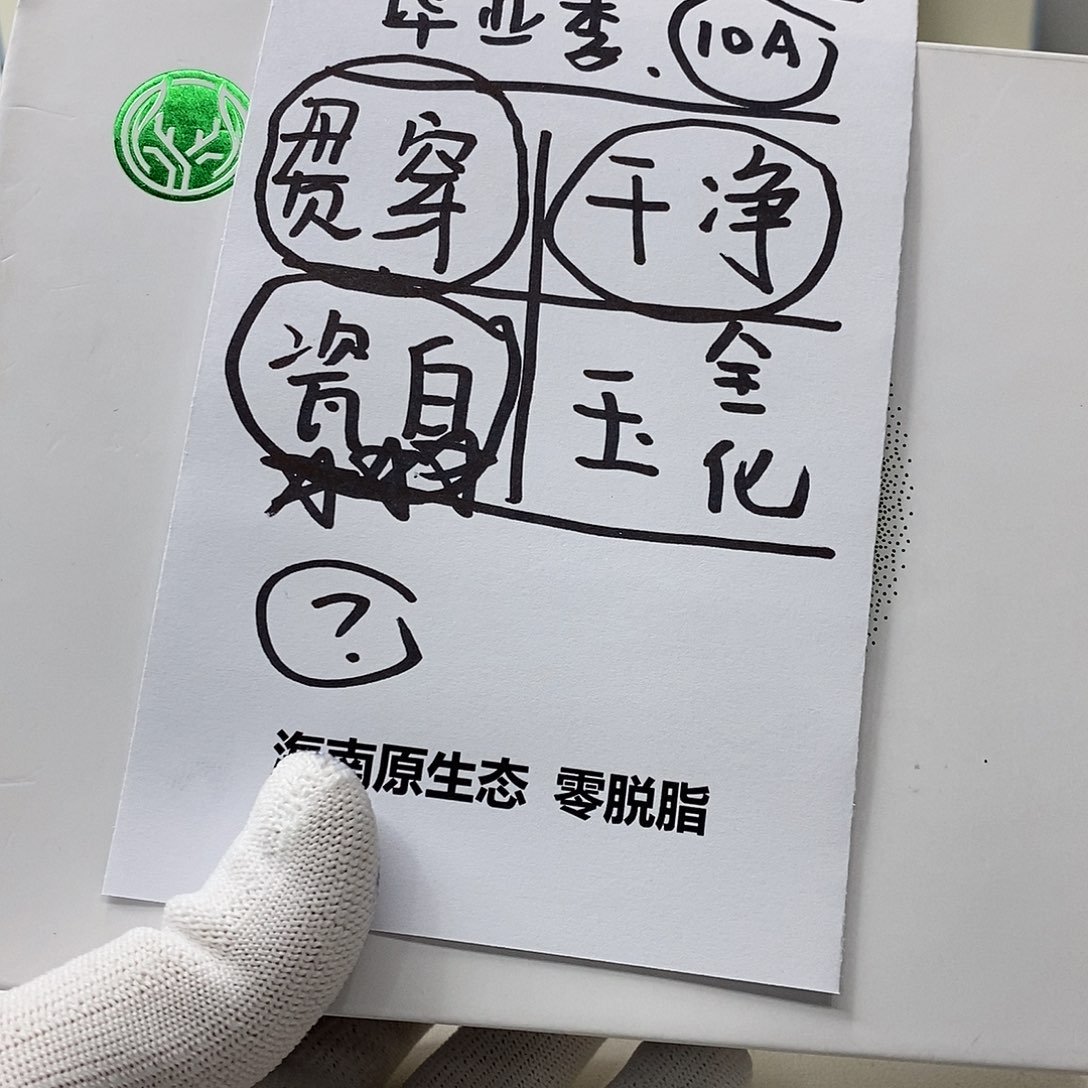 毕业季. 10A
贯穿 干净
瓷白 玉 全化
?
海南原生态 零脱脂